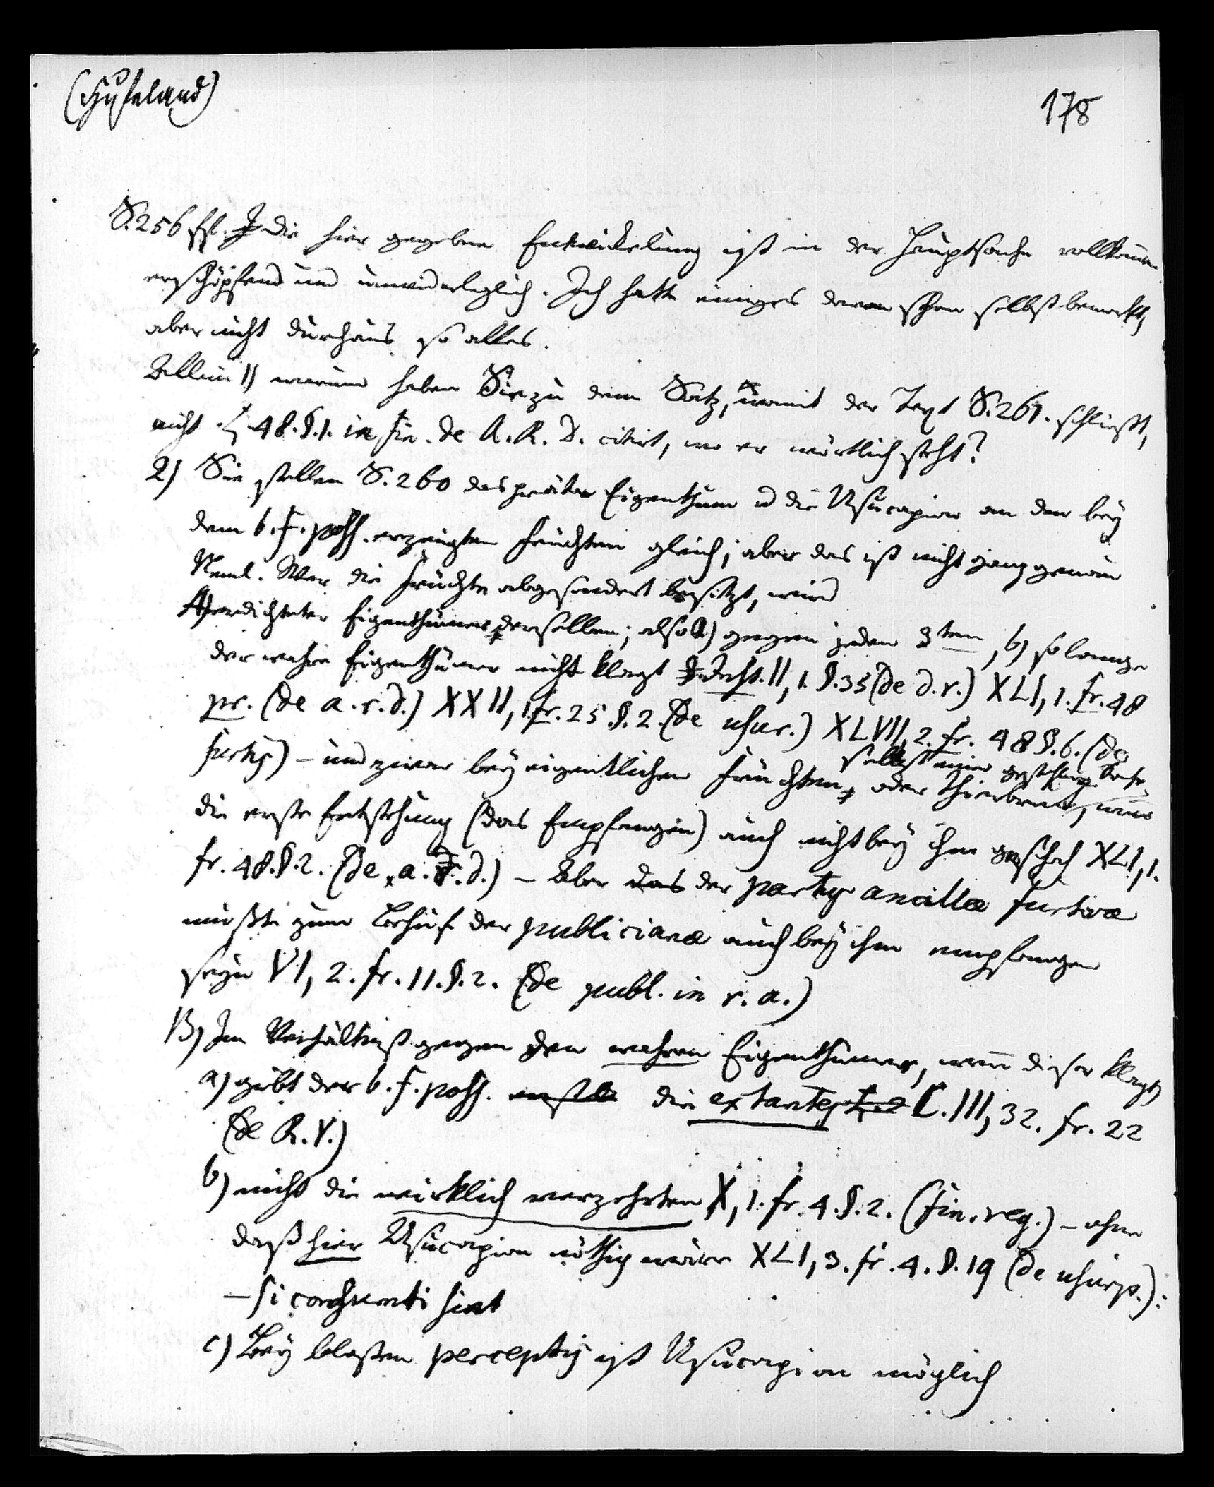 (Hufeland)
178
S. 256 ff. die hier gegebene Entwickelung ist in der Hauptsache vollkom̅en
erschöpfend und unwiderleglich. Ich hatte einiges davon schon selbst bemerkt,
aber nicht durchaus so alles.
Allein 1) warum haben Sie zu dem Satz, womit der Text S. 261. schließt,
nicht L. 48. §. 1. in fin. de A. R. D. citirt, wo er wörtlich steht?
2) Sie stellen S. 260 das prätor Eigenthum u die Usucapion an den bey
dem b. f. poss. erzeugten Früchten gleich; aber das ist nicht ganz genau
Neml. Wer die Früchte abgesondert besitzt, wird
A) erdichteter Eigenthümer derselben; also a) gegen jeden 3ten, b) so lange
der wahre Eigenthümer nicht klagt Inst. II, 1. §. 35 (de d. r.) XLI, 1. fr. 48
pr. (de a. r. d.) XXII, 1. fr. 25 §. 2. (de usur.) XLVII, 2. fr. 48 §. 6. (de
furtis) – und zwar bey eigentlichen Früchten, oder Thierbrut, wenn
selbst einer gestohlnen Sache
die erste Entstehung (das Empfangen) auch nicht bey ihm geschah XLI, 1.
fr. 48. §. 2. (de a. r. d.) – Aber das der partus ancillae furtivae
müßte zum Behuf der publiciana auch bey ihm empfangen
seyn VI, 2. fr. 11. §. 2. (de publ. in r. a.)
B) Im Verhältniß gegen den wahren Eigenthümer, wen̅ dieser klagt,
a) giebt der b. f. poss. die extantes C. III, 32. fr. 22
(de R. V.)
b) nicht die wirklich verzehrten X, 1. fr. 4. §. 2. (fin. reg.) – ohne
daß hier Usucapion nöthig wäre XLI, 3. fr. 4. §. 19 (de usurp.):
– si consumti sint
c) Bey bloßen perceptis ist Usucapion möglich